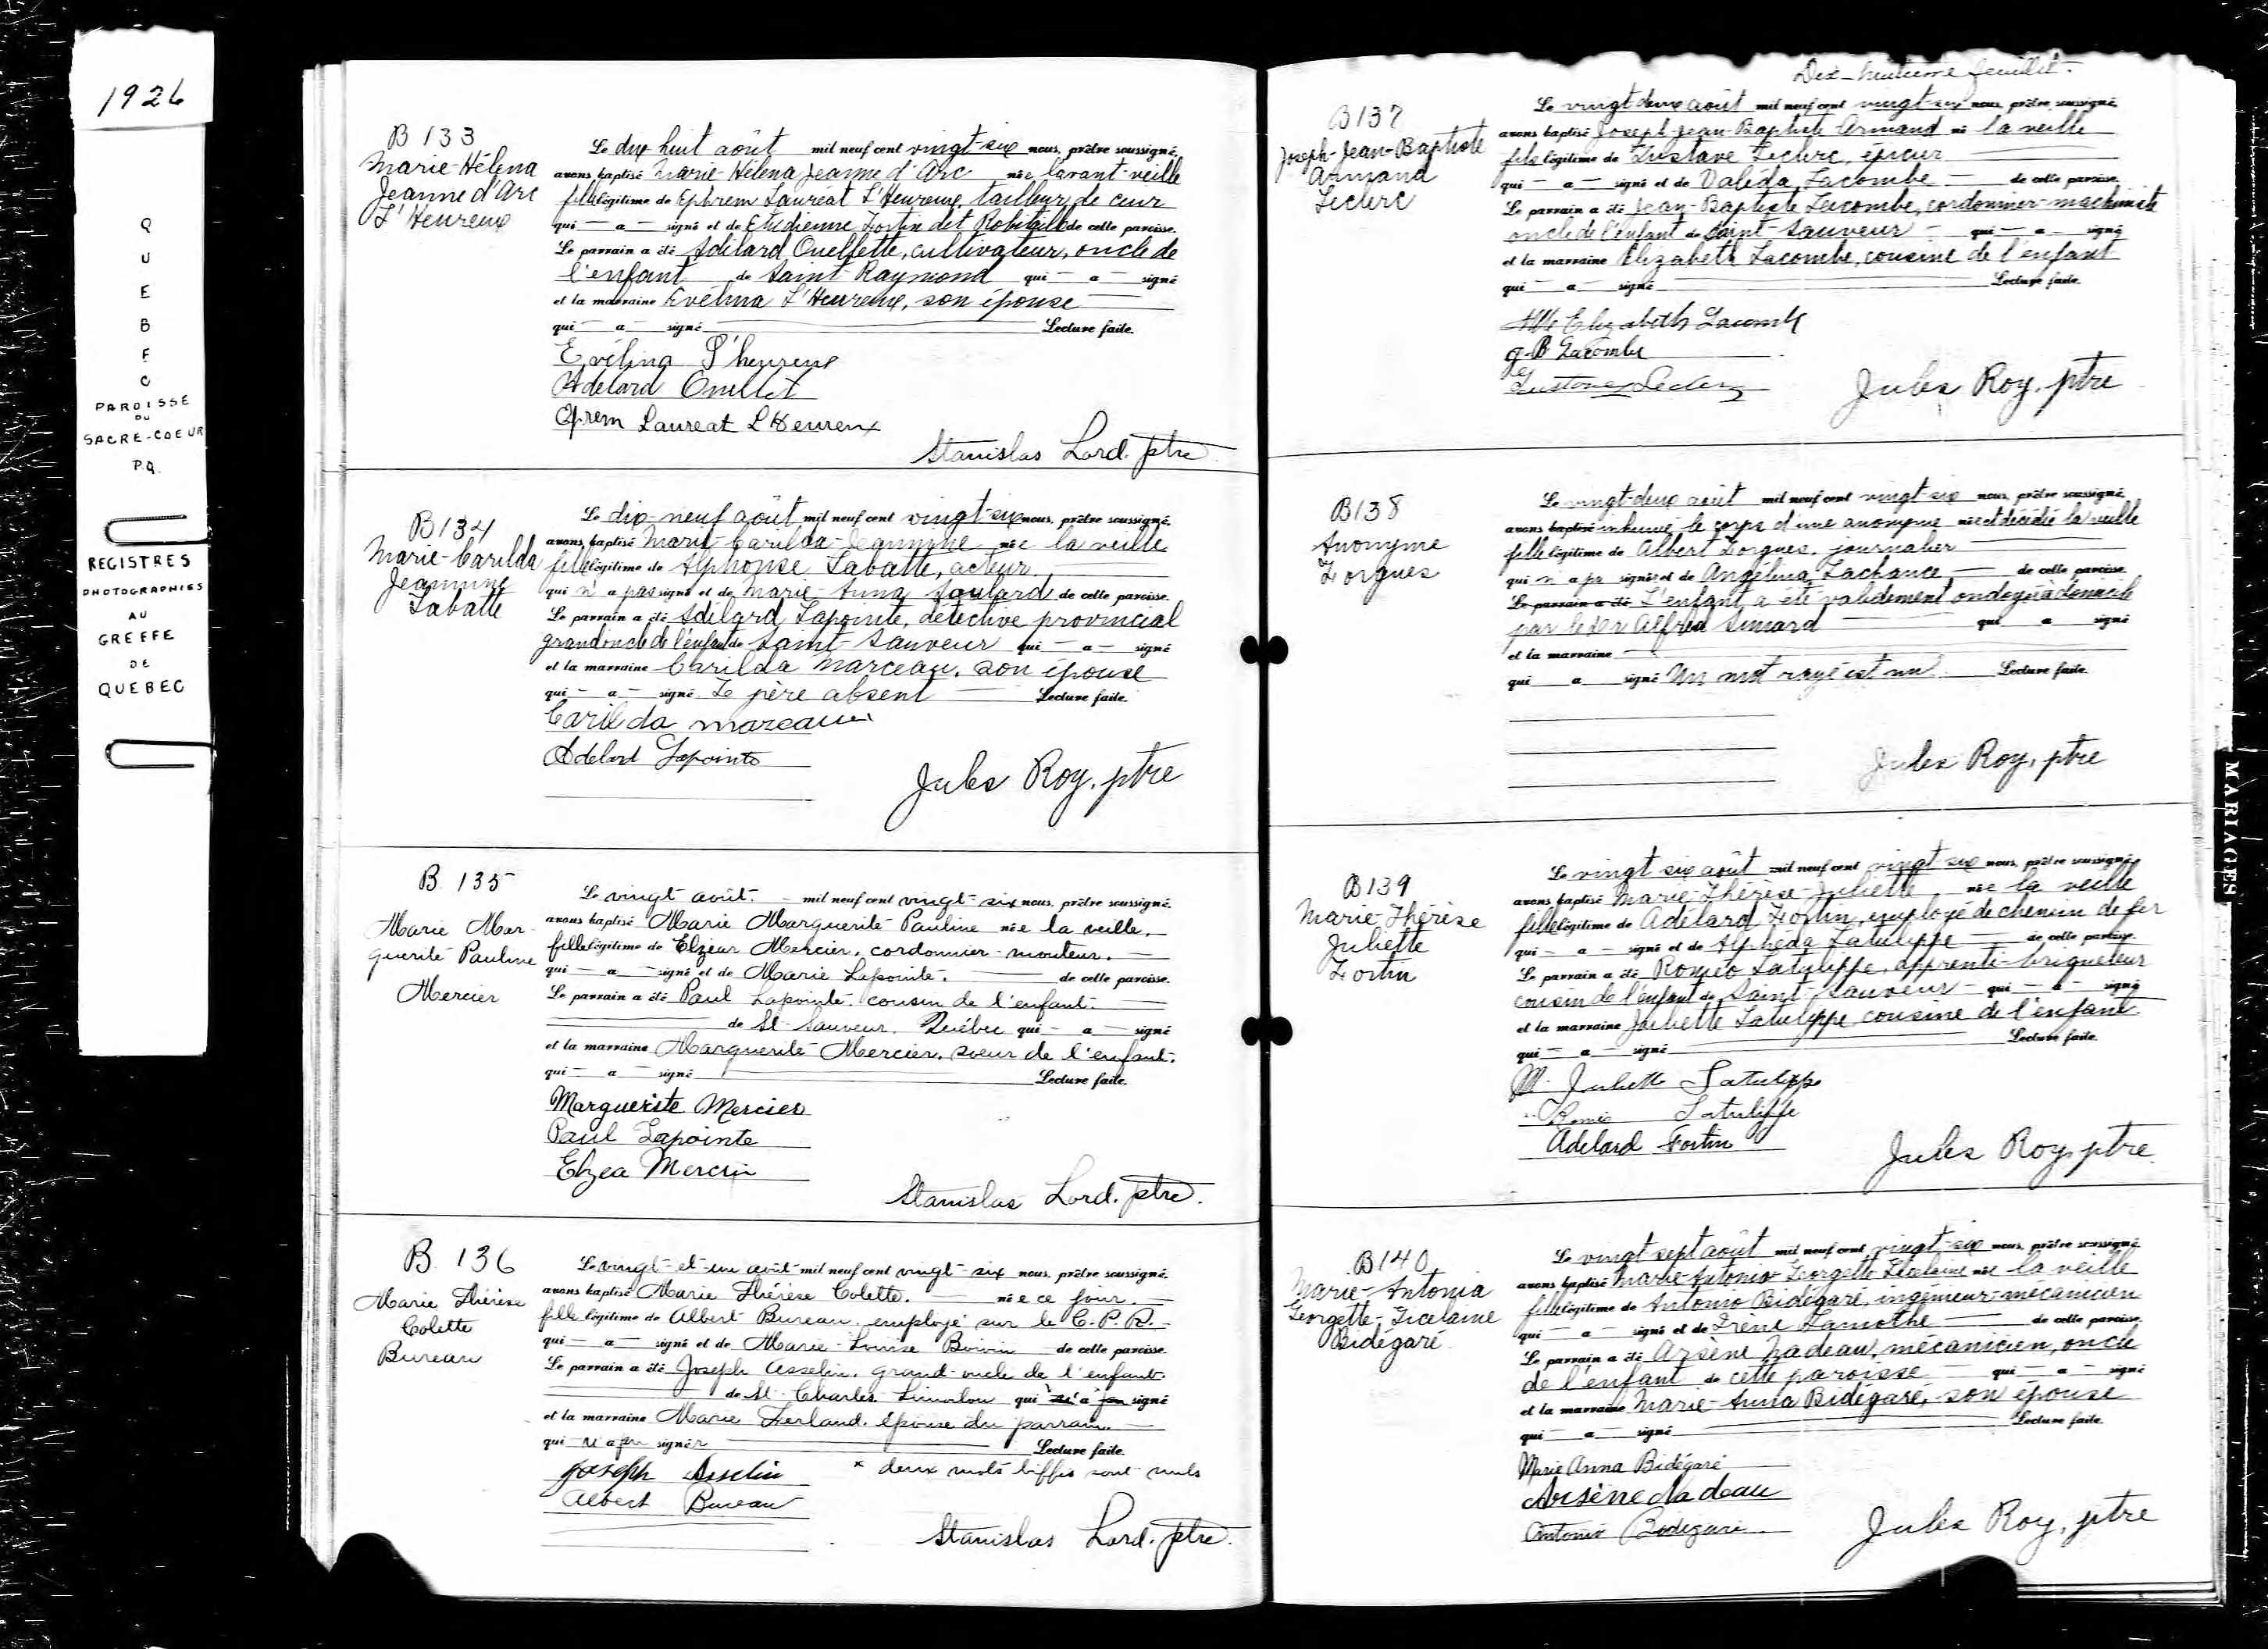 1926
QUEBEC
PAROISSE
DU
SACRE-COEUR
P.Q.
REGISTRES
PHOTOGRAPHIES
AU
GREFFE
DE
QUEBEC
B 133
Marie-Hélena
Jeanne d'Arc
L'Heureux
Le dix huit août mil neuf cent vingt-six nous, prêtre soussigné,
avons baptisé Marie-Hélena Jeanne d'Arc née l'avant-veille
fille légitime de Ephrem Lauréat L'Heureux, tailleur de cuir
qui — a — signé et de Fortin dit Robitaille de cette paroisse.
Le parrain a été Adélard Ouellette, cultivateur, oncle de
l'enfant de Saint-Raymond qui — a — signé
et la marraine Evélina L'Heureux, son épouse
qui — a — signé Lecture faite.
Evélina L'heureux
Adelard Ouellet
Efrem Laureat L'Heureux
Stanislas Lord. ptre
B 134
Marie-Carilda
Jeannine
Labatte
Le dix-neuf août mil neuf cent vingt-six nous, prêtre soussigné,
avons baptisé Marie-Carilda-Jeannine née la veille
fille légitime de Alphonse Labatte, acteur.
qui n'a pas signé et de Marie-Anna Soulard de cette paroisse.
Le parrain a été Adélard Lapointe, détective provincial
grand oncle de l'enfant de Saint-Sauveur qui — a — signé
et la marraine Carilda Marceau, son épouse
qui — a — signé Le père absent — Lecture faite.
Carilda marceau
Adelard Lapointe
Jules Roy, ptre
B. 135
Marie Mar-
guerite Pauline
Mercier
Le vingt août. — mil neuf cent vingt-six nous, prêtre soussigné,
avons baptisé Marie Marguerite Pauline née la veille. —
fille légitime de Elzéar Mercier, cordonnier-monteur. —
qui — a — signé et de Marie Lapointe. — de cette paroisse.
Le parrain a été Paul Lapointe, cousin de l'enfant. —
de St-Sauveur, Québec qui — a — signé
et la marraine Marguerite Mercier, soeur de l'enfant.
qui — a — signé Lecture faite.
Marguerite Mercier
Paul Lapointe
Elzea Mercier
Stanislas Lord. ptre.
B. 136
Marie Thérèse
Colette
Bureau
Le vingt-et-un août mil neuf cent vingt-six nous, prêtre soussigné,
avons baptisé Marie Thérèse Colette. — née ce jour. —
fille légitime de Albert Bureau, employé sur le C.P.R. —
qui — a — signé et de Marie-Louise Boivin de cette paroisse.
Le parrain a été Joseph Asselin, grand-oncle de l'enfant.
de St-Charles Limoilou qui n'a pas signé
et la marraine Marie Ferland, épouse du parrain. —
qui n'a pu signer Lecture faite.
Joseph Asselin × deux mots biffés sont nuls
Albert Bureau
Stanislas Lord. ptre.
Dix-huitième feuillet.
B137
Joseph-Jean-Baptiste
Armand
Leclerc
Le vingt deux août mil neuf cent vingt-six nous, prêtre soussigné,
avons baptisé Joseph Jean-Baptiste Armand né la veille
fils légitime de Gustave Leclerc, épicier
qui — a — signé et de Valéda Lacombe — de cette paroisse.
Le parrain a été Jean-Baptiste Lacombe, cordonnier-machiniste
oncle de l'enfant de Saint-Sauveur — qui — a — signé
et la marraine Elizabeth Lacombe, cousine de l'enfant
qui — a — signé Lecture faite.
Mlle Elizabeth Lacombe
J.B Lacombe
Gustave Leclerc
Jules Roy, ptre
B138
Anonyme
Lorgues
Le vingt-deux août mil neuf cent vingt-six nous, prêtre soussigné,
avons baptisé inhumé le corps d'une anonyme née et décédée la veille
fille légitime de Albert Lorgues, journalier
qui n'a pu signer et de Angélina Lachance — de cette paroisse.
Le parrain a été L'enfant a été validement ondoyée à domicile
par le Dr Alfred Simard — qui a signé
et la marraine
qui a signé Un mot rayé est nul Lecture faite.
Jules Roy, ptre
B139
Marie-Thérèse
Juliette
Fortin
Le vingt six août mil neuf cent vingt-six nous, prêtre soussigné,
avons baptisé Marie-Thérèse-Juliette née la veille
fille légitime de Adélard Fortin, employé de chemin de fer
qui — a — signé et de Alphéda Latulippe — de cette paroisse.
Le parrain a été Roméo Latulippe, apprenti-briqueteur
cousin de l'enfant de Saint-Sauveur — qui — a — signé
et la marraine Juliette Latulippe cousine de l'enfant
qui — a — signé Lecture faite.
M. Juliette Latulippe
Roméo Latulippe
Adelard Fortin
Jules Roy, ptre
B140
Marie-Antonia
Georgette-Ticelaine
Bidégaré
Le vingt sept août mil neuf cent vingt-six nous, prêtre soussigné,
avons baptisé Marie-Antonia Georgette née la veille
fille légitime de Antonio Bidégaré, ingénieur-mécanicien
qui — a — signé et de Irène Lamothe — de cette paroisse.
Le parrain a été Arsène Nadeau, mécanicien, oncle
de l'enfant de cette paroisse — qui — a — signé
et la marraine Marie-Anna Bidégaré, son épouse
qui — a — signé Lecture faite.
Marie Anna Bidégaré
Arsène Nadeau
Antonio Bidégaré
Jules Roy, ptre
MARIAGES